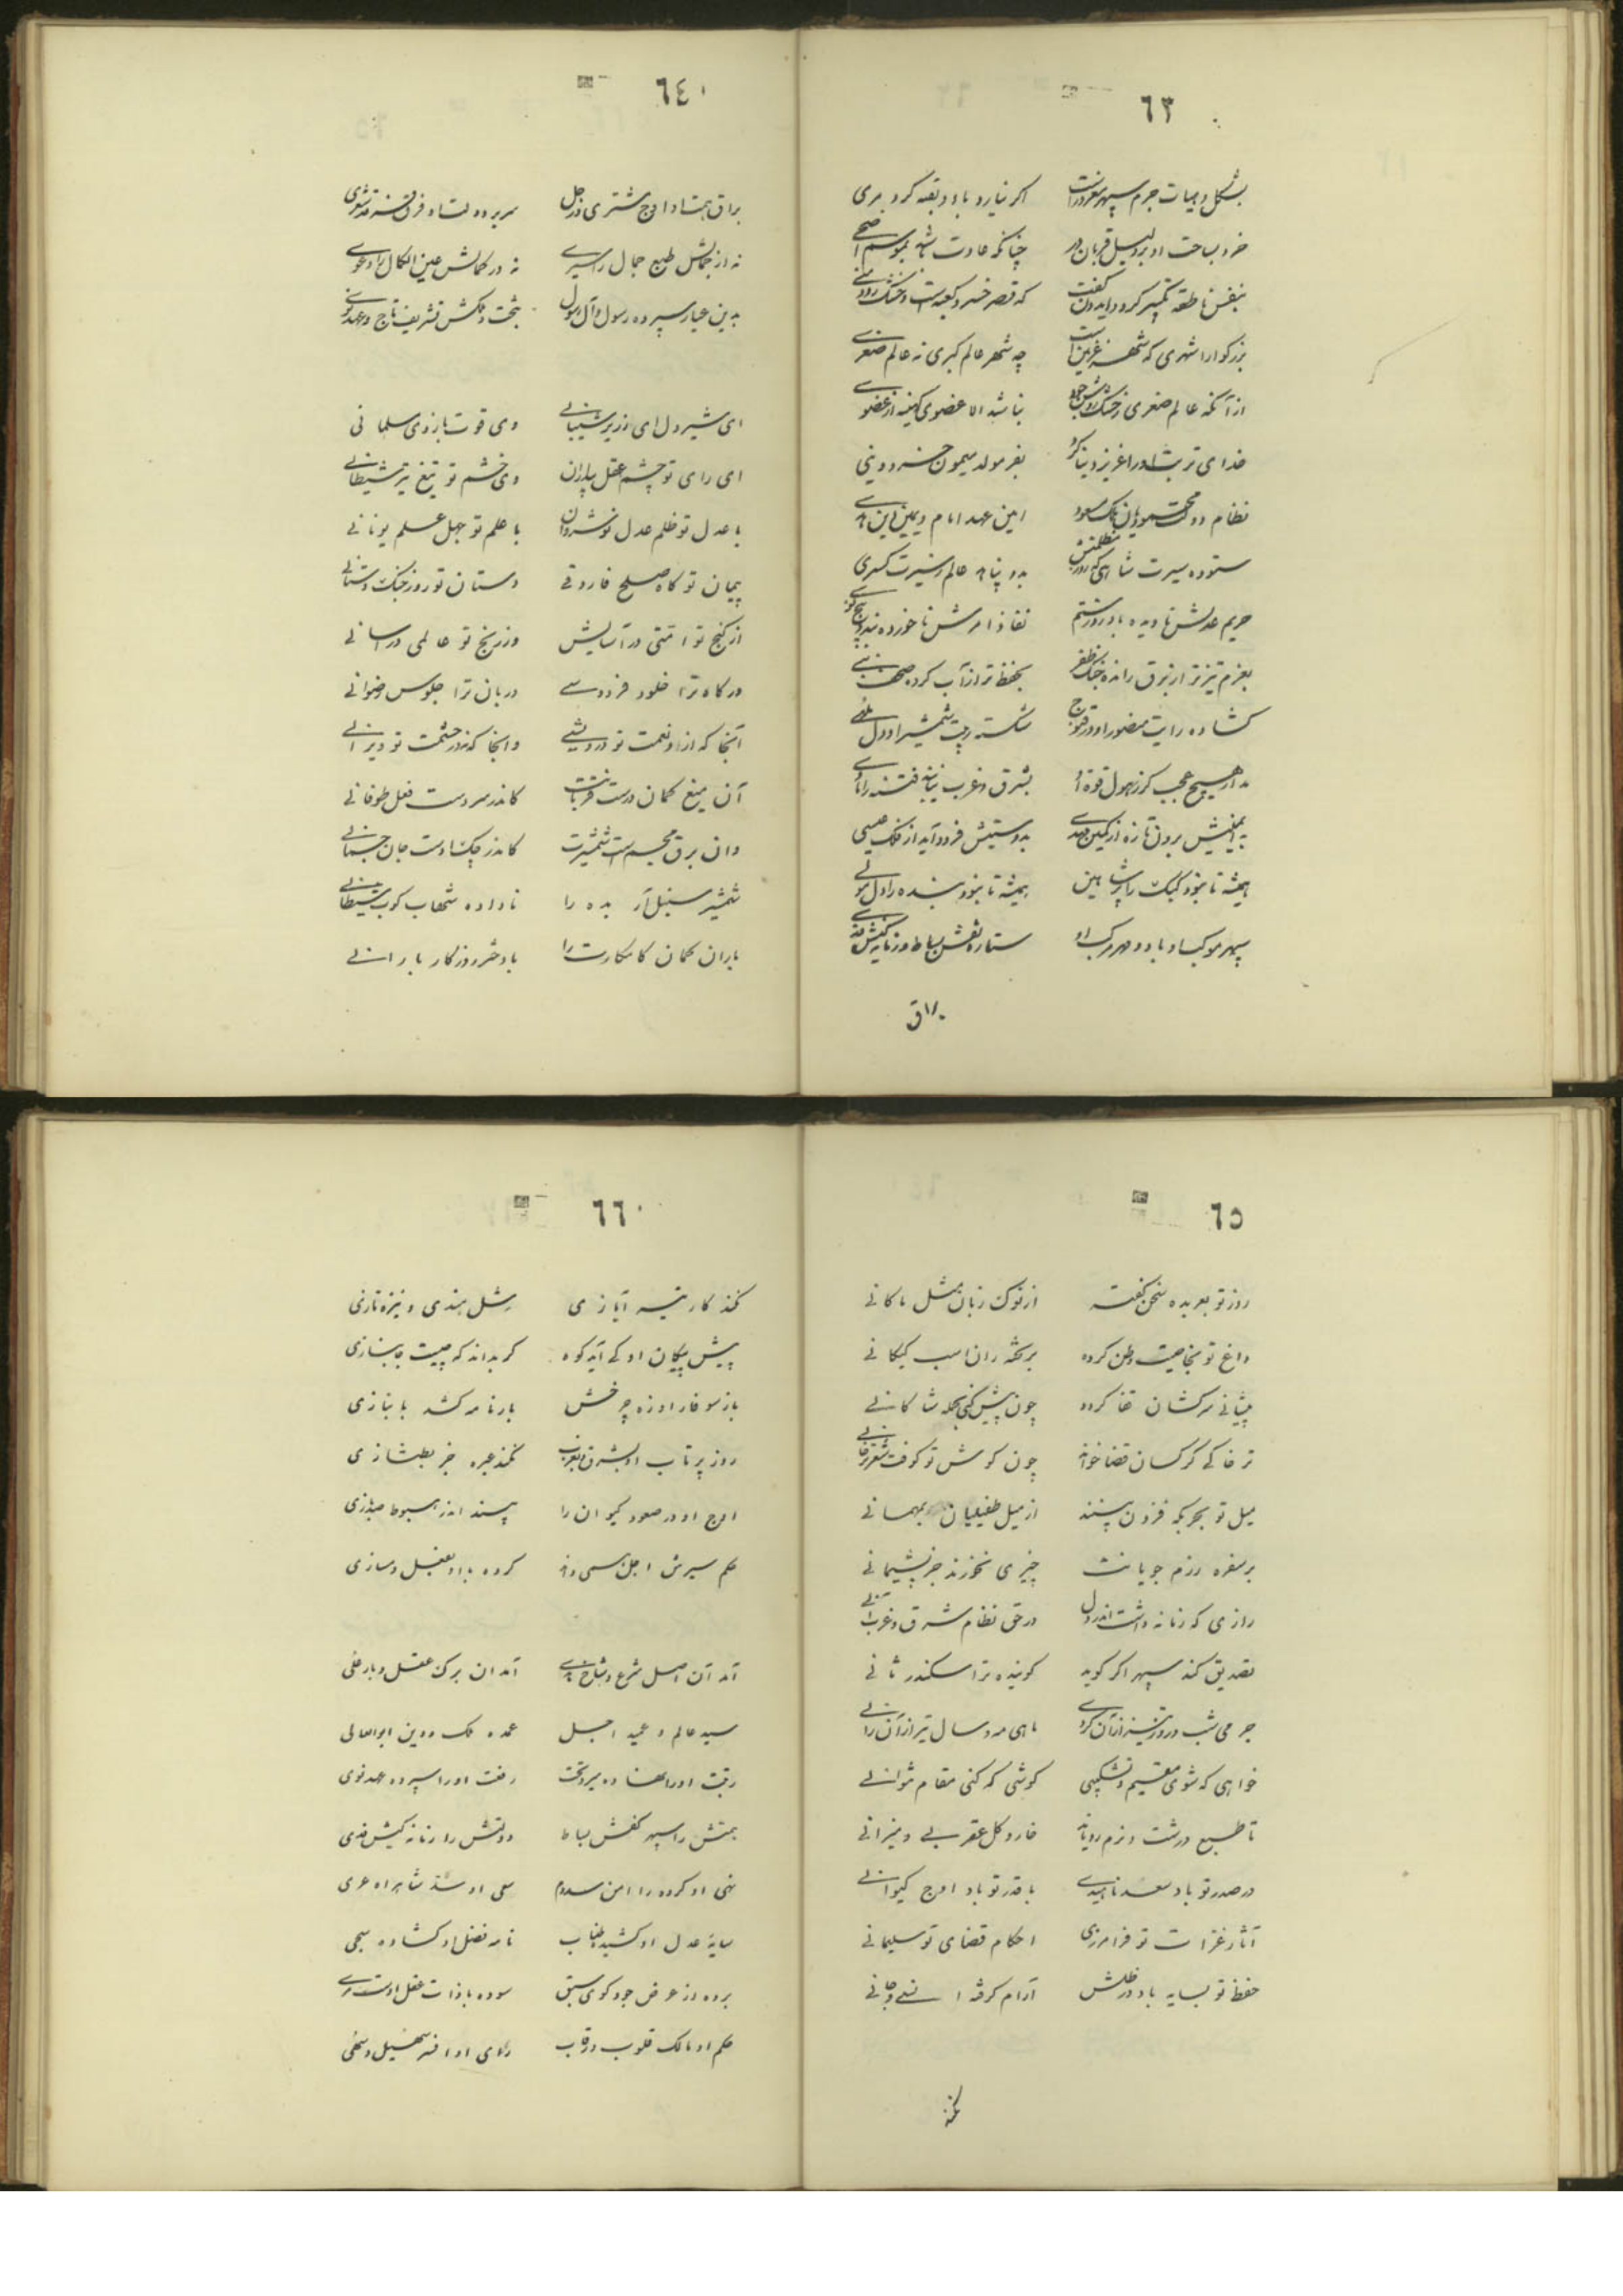 ٦٣
بشکل و هیات جرم سپهر معذورست اگر نیارد باد و بقیه کرد مری
خرد بساحت او بر دلیل قربان در چنانکه عادت باشد بموسم اضحی
بنفس ناطقه تکبیر کرد و ایدون گفت که قصر خسرو کعبه است و خشک رود منی
بزرگوارا شهری که شهر غزنین است چه شهر عالم کبری نه عالم صغری
از آنکه عالم صغری ز خشک رودش نباشد الا عضوی کمینه از عضوی
خدای تربت او را عزیز دنیا کرد بفر مولد میمون خسرو دینی
نظام دولت محمودیان ملک مسعود امین عهد امام و یمین دین هدی
ستوده سیرت شاهی که روز مظلمتش بدو پناهد عالم ز سیرت کسری
حریم عدلش نادیده باد روز ستم نفاذ امرش ناخورده
بعزم تیزتر از برق رانده خنک ظفر بحفظ تر از آب کرده
گشاده رایت منصور او در قنوج شکسته هیبت شمشیر او دل
مدار هیچ عجب کز هول قوت او بشرق و غرب نیابند فتنه را ماوی
به ایمنیش برون تازد از کمین مهدی بدوستیش فرود آید از فلک عیسی
همیشه تا نبود کبک را پر شاهین همیشه تا نبود بنده را دل مولی
سپهر موکب او باد و مهر مرکب او ستاره نقش بساط و زمانه کیش فدی
براق
٦٤
براق همت او اوج مشتری و زحل سریر دولت او فرق
نه در جمالش طبع جمال را سیری نه در کمالش عین الکمال را دعوی
بدین عیار سپرده رسول و آل رسول بتخت و ملکش تشریف تاج و عهد
ای شیردل ای زریر شیبانی وی قوت بازوی سلمانی
ای رای تو چشم عقل پیاران وی خشم تو تیغ تیز شیطانی
با عدل تو ظلم عدل نوشروان با علم تو جهل علم یونانی
پیمان تو گاه صلح فاروقی دستان تو روز جنگ دستانی
از گنج تو امتی در آسایش وز رنج تو عالمی در آسانی
درگاه ترا خلود فردوسی دربان ترا جلوس رضوانی
آنجا که از او نعمت تو درویشی وانجا که نه در حشمت تو ویرانی
آن میغ کمان درست قربانت کاندر سر دست فعل طوفانی
وان برق مجسم است شمشیرت کاندر چک اوست جان جسمانی
شمشیر سنبل آر بده را ناداده شهاب کوب شیطانی
باران کمان کامکارت را با دختر روزگار بارانی
٦٥
روز تو بعربده سخن گفته از نوک زبان مثل ماکانی
داغ تو بخاصیت وطن کرده بر پخته ران اسب کیکانی
پیشانی سرکشان قفا کرده چون پیش کنی بحمله شاکانی
تر خاکی کرکسان قضا خواند چون کوس تو کوفت شعر خاقانی
میل تو بحربگه فزون بینند از میل طفیلیان بمهمانی
بر سفره رزم جویانت چیزی نخورند جز پشیمانی
رازی که زمانه داشت اندر دل در حق نظام شرق و غرب آنی
تصدیق کند سپهر اگر گوید گوینده ترا سکندر ثانی
جرمی شب و روز تیز از آن گردی ماهی مه و سال تیز از آن رانی
خواهی که شوی مقیم و نشکیبی کوشی که کنی مقام و نتوانی
تا طبع درشت و نرم رویاند خار و گل عقربی و میزانی
در صدر تو باد سعد ناهیدی با قدر تو باد اوج کیوانی
آثار غزات تو فرامرزی احکام قضای تو سلیمانی
حفظ تو بسایه باد و در ظلش آرام گرفته انسی و جانی
نکند
٦٦
نکند کار تیر آیازی شل هندی و نیزه تازی
پیش پیکان او کی آید کوه گر بداند که چیست جانبازی
باز سوفار او زه چرخش بارنامه کشد بابنازی
روز پرتاب او بشرق و غرب نکند عبره جز بطنازی
اوج او در صعود کیوان را پسند اندر هبوط
حکم سیرش اجل همی داند کرده با او بفعل دمسازی
آمد آن اصل شرع و شاخ هدی آمد ان برگ عقل و بار علی
سید عالم و عمید اجل عمده ملک و دین ابوالعالی
رقبت او را نهاده میر و تخت رفعت او را سپرده عهد نوی
همتش را سپهر کفش بساط دولتش را زمانه کیش فدی
نهی او کرده را امن سدوم سعی او شد شاهراه عری
سایهٔ عدل او کشیده طناب نامه فضل او گشاده سجی
برده از عرض جود گوی سبق سوده با ذات عقل اوست مری
حکم او مالک قلوب و رقاب رای او افسر سهیل و سهی